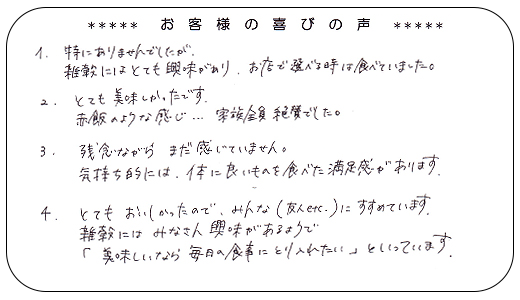 ***** お客様の喜びの声 *****
1. 特にありませんでしたが、
雑穀にはとても興味があり、お店で選べる時は食べていました。
2. とても美味しかったです。
赤飯のような感じ… 家族全員絶賛でした。
3. 残念ながら まだ感じていません。
気持ち的には、体に良いものを食べた満足感があります。
4. とても おいしかったので、みんな(友人etc.)にすすめています。
雑穀には みなさん 興味があるようで
「美味しいなら 毎日の食事にとり入れたい」といっています。